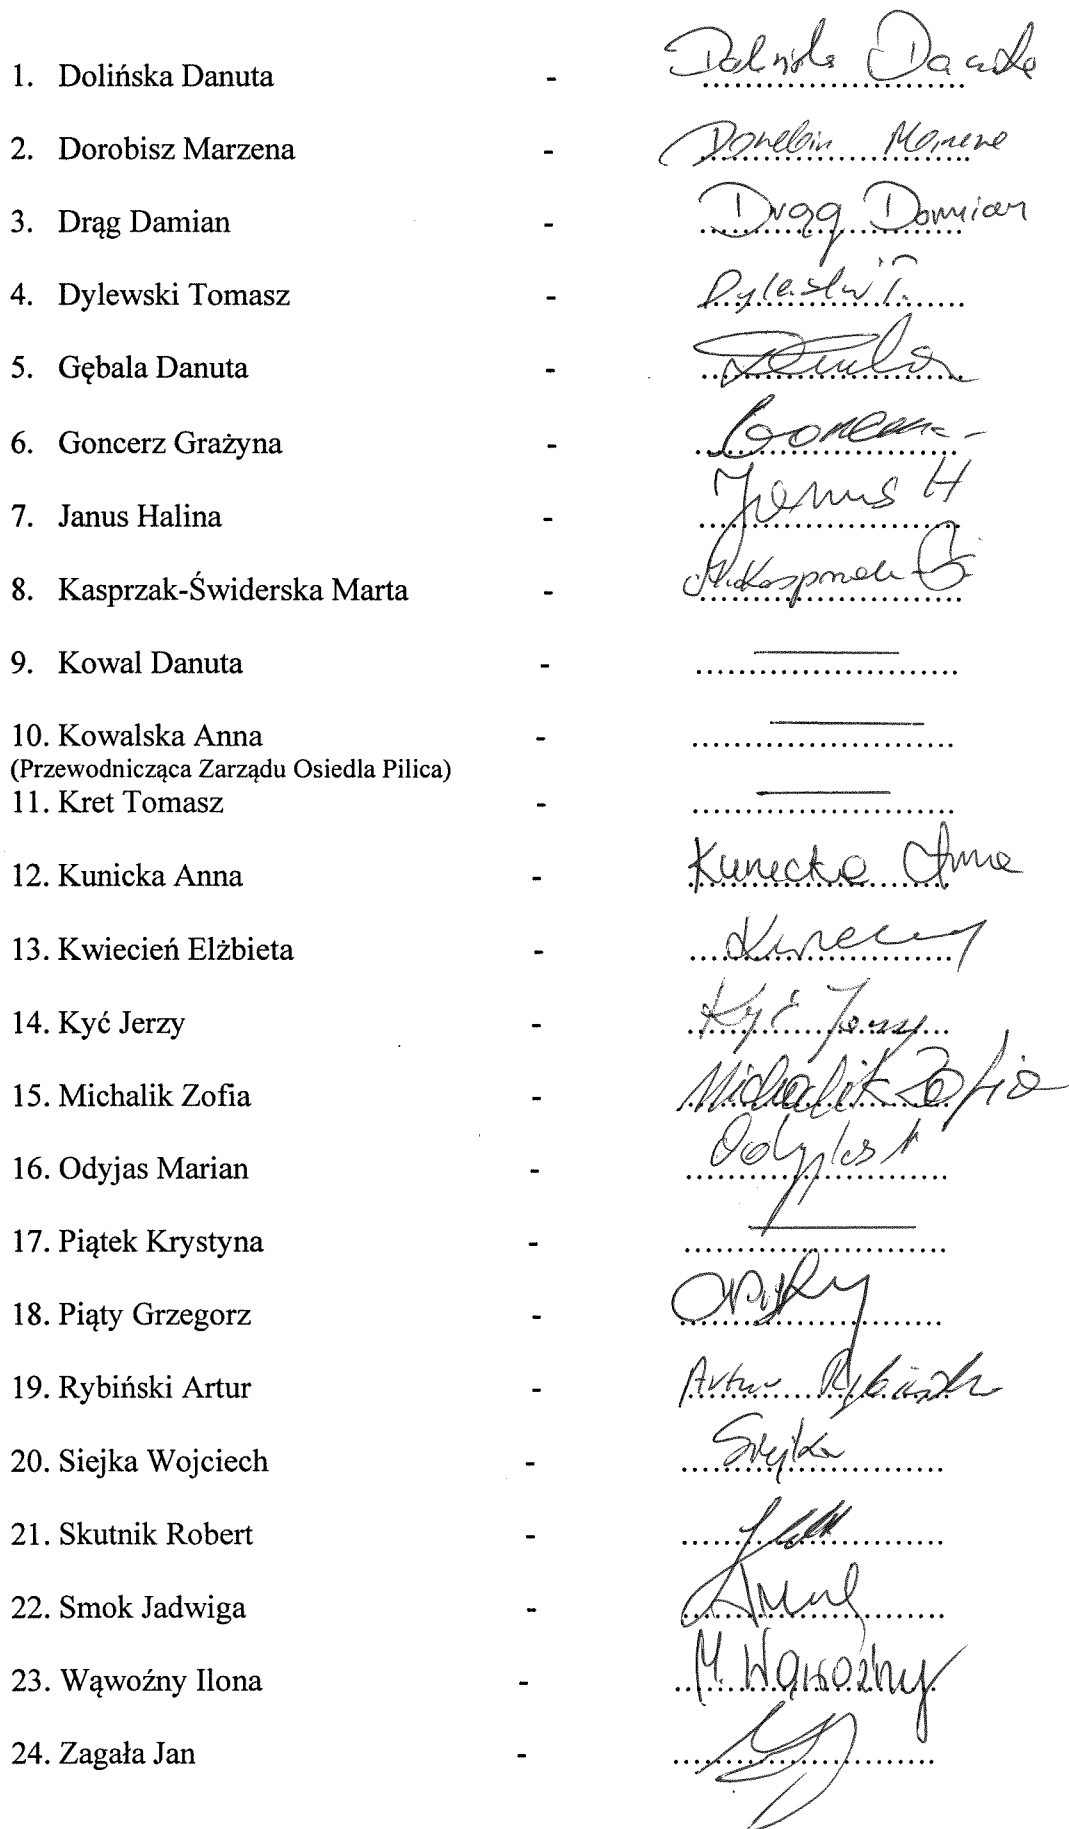 1. Dolińska Danuta - Dolińska Danuta
2. Dorobisz Marzena - Marzena
3. Drąg Damian - Drąg Damian
4. Dylewski Tomasz - Dylewski T.
5. Gębala Danuta -
6. Goncerz Grażyna - Goncerz
7. Janus Halina - Janus H
8. Kasprzak-Świderska Marta - M. Kasprzak Ś
9. Kowal Danuta -
10. Kowalska Anna -
(Przewodnicząca Zarządu Osiedla Pilica)
11. Kret Tomasz -
12. Kunicka Anna - Kunicka Anna
13. Kwiecień Elżbieta -
14. Kyć Jerzy - Kyć Jerzy
15. Michalik Zofia - Michalik Zofia
16. Odyjas Marian - Odyjas M
17. Piątek Krystyna -
18. Piąty Grzegorz -
19. Rybiński Artur - Artur Rybiński
20. Siejka Wojciech - Siejka
21. Skutnik Robert -
22. Smok Jadwiga -
23. Wąwoźny Ilona - M. Wąwoźny
24. Zagała Jan -